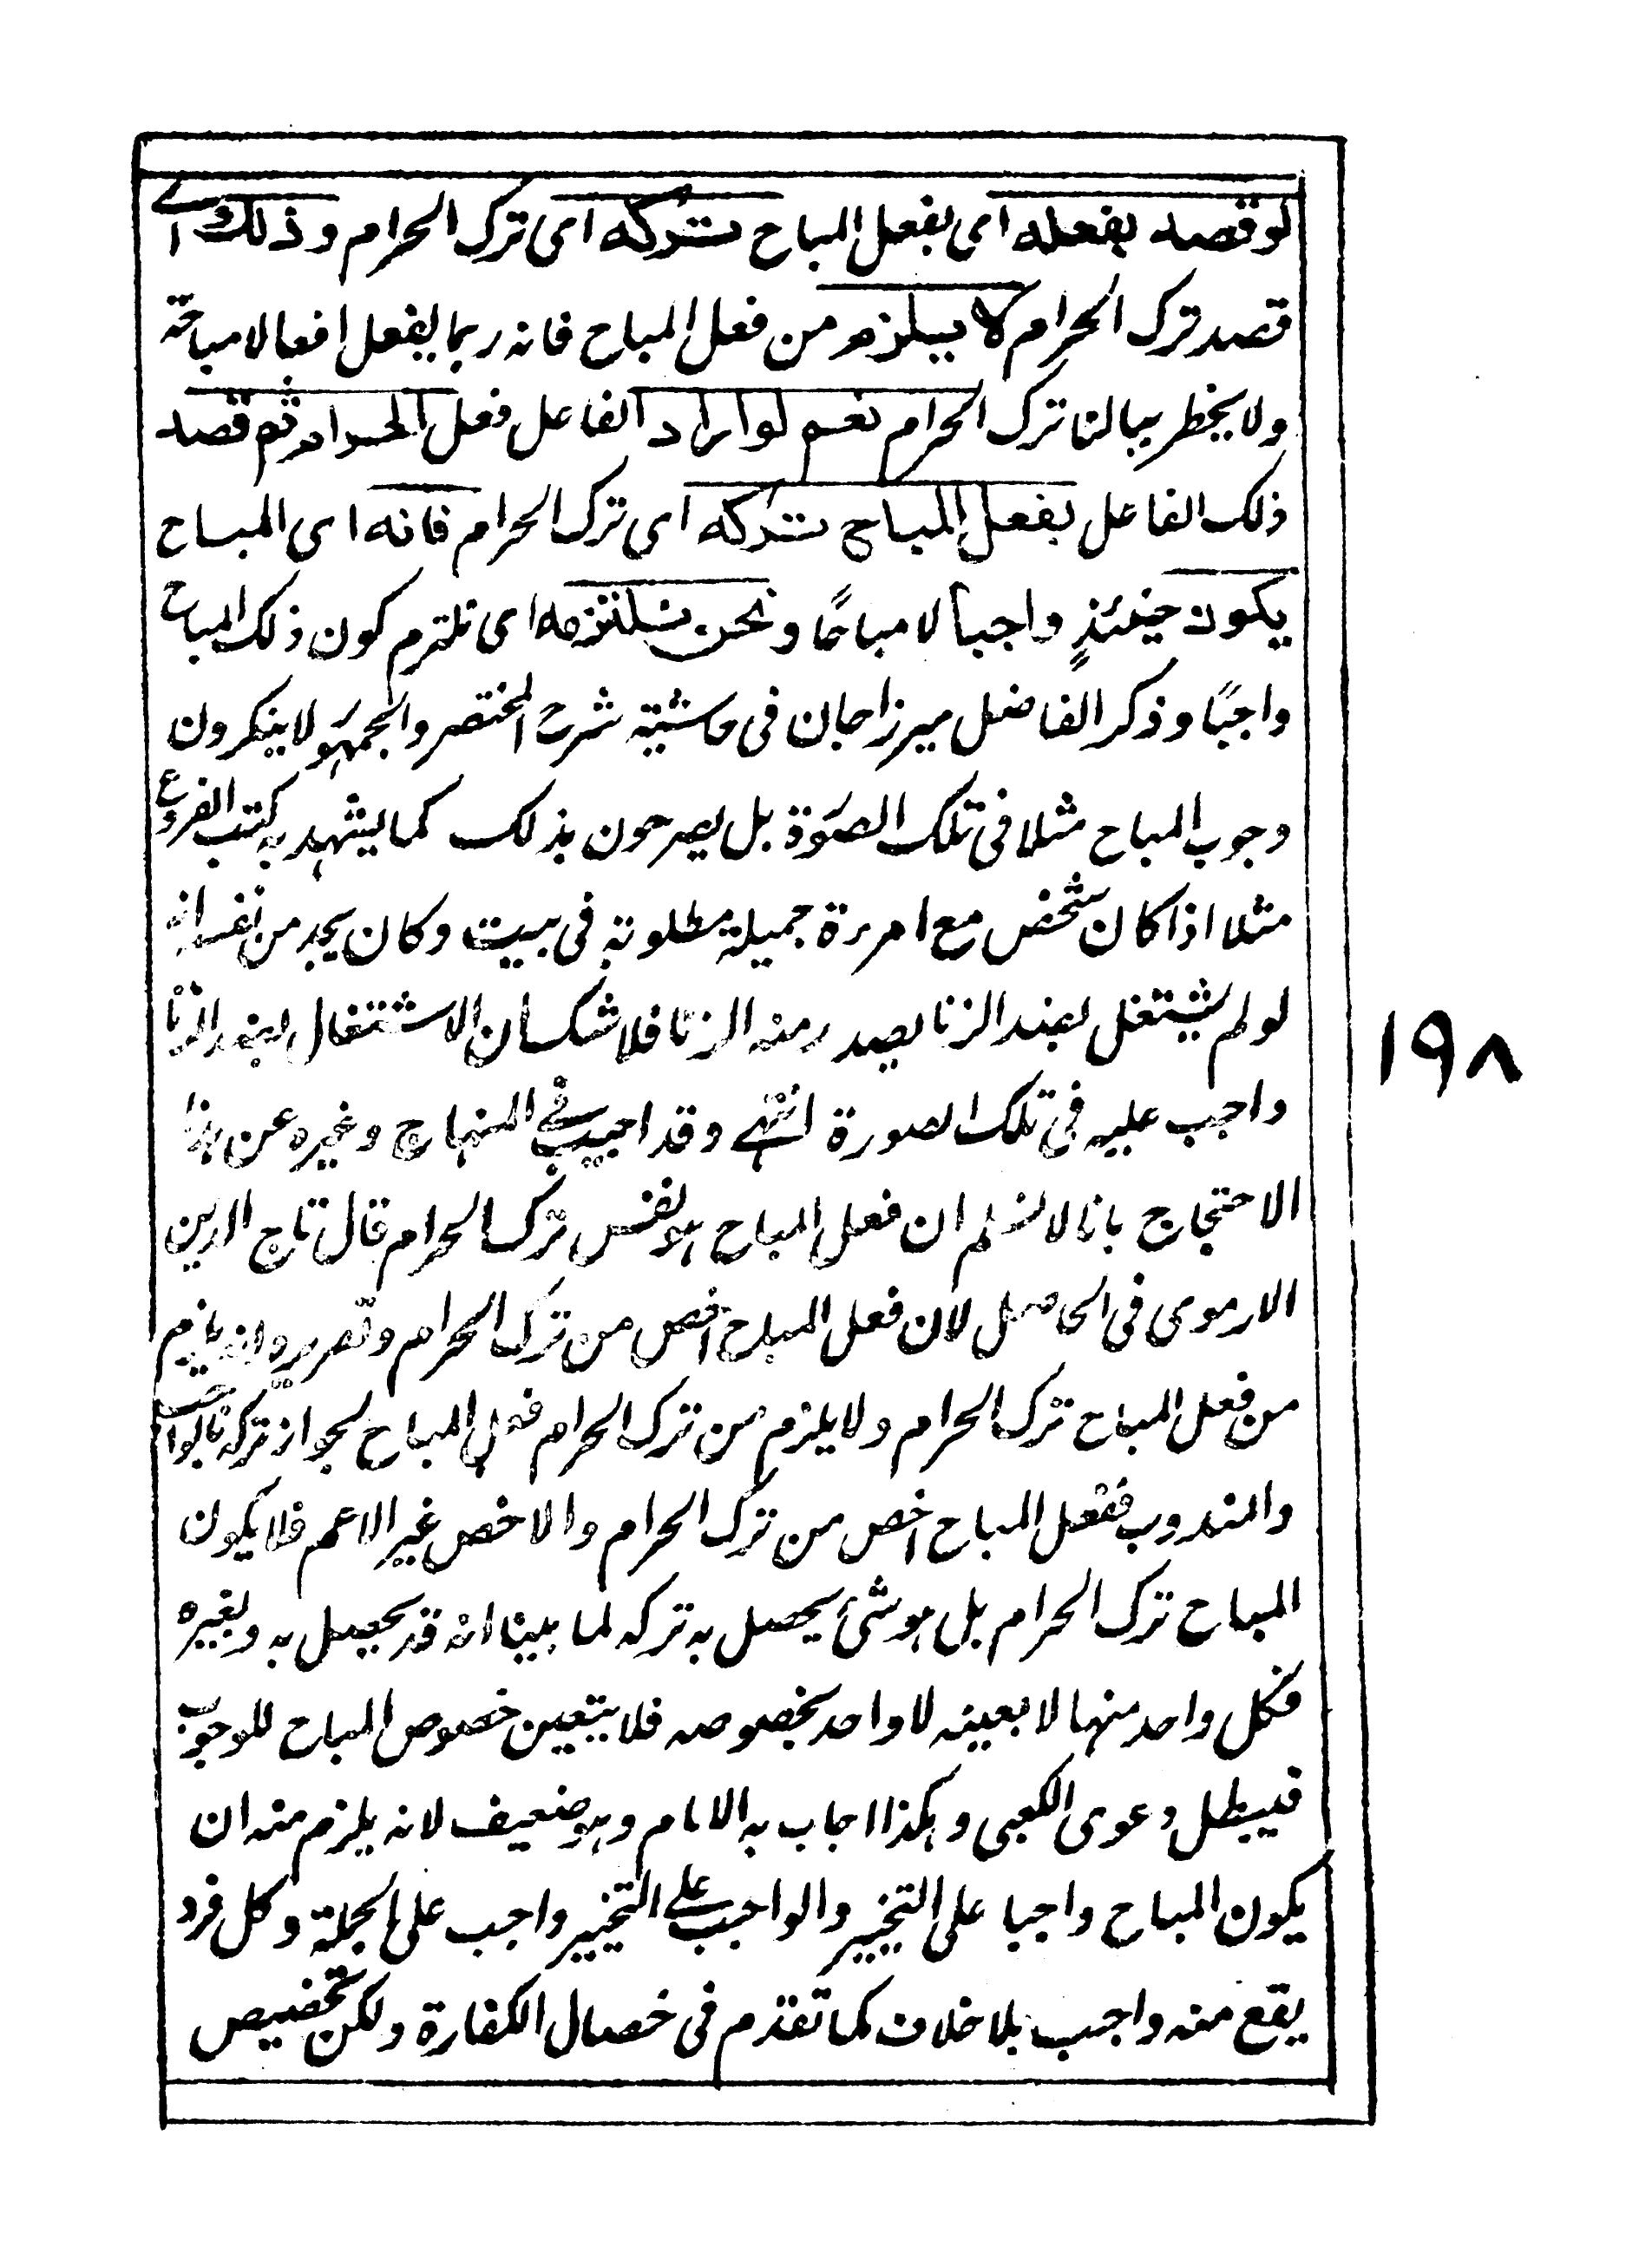 لو قصد بفعله اى بفعل المباح تركه اى ترك الحرام وذلك اے
قصد ترك الحرام لا يلزم من فعل المباح فانه ربما يفعل افعالا مباحة
ولا يخطر ببالنا ترك الحرام نعم لو اراد الفاعل فعل الحرام ثم قصد
ذلك الفاعل بفعل المباح تركه اى ترك الحرام فانه اى المباح
يكون حينئذٍ واجبا لا مباحًا ونحن نلتزمه اى نلتزم كون ذلك المباح
واجبًا وذكر الفاضل ميرزا جان فى حاشية شرح المختصر والجمهور لا ينكرون
وجوب المباح مثلا فى تلك الصورة بل يصرحون بذلك كما يشهد به كتب الفروع
مثلا اذا كان شخص مع امرءة جميلة مطلوبة فى بيت وكان يجد من نفسه انه
لو لم يشتغل بضد الزنا يصدر منه الزنا فلا شك ان الاشتغال بضد الزنا
واجب عليه فى تلك الصورة انتهى وقد اجيب فى المنهاج وغيره عن هذا
الاحتجاج بانا لا نسلم ان فعل المباح هو نفس ترك الحرام قال تاج الدين
الارموى فى الحاصل لان فعل المباح اخص من ترك الحرام وتقريره انه يلزم
من فعل المباح ترك الحرام ولا يلزم من ترك الحرام فعل المباح لجواز تركه بالواجب
والمندوب ففعل المباح اخص من ترك الحرام والاخص غير الاعم فلا يكون
المباح ترك الحرام بل هو شئ يحصل به تركه لما بينا انه قد يحصل به وبغيره
فكل واحد منها لا بعينه لا واحد بخصوصه فلا يتعين خصوص المباح للوجوب
فيبطل دعوى الكعبى وهكذا اجاب به الامام وهو ضعيف لانه يلزم منه ان
يكون المباح واجبا على التخيير والواجب على التخيير واجب على الجملة وكل فرد
يقع منه واجب بلا خلاف كما تقدم فى خصال الكفارة ولكن تخصيص
١٩٨